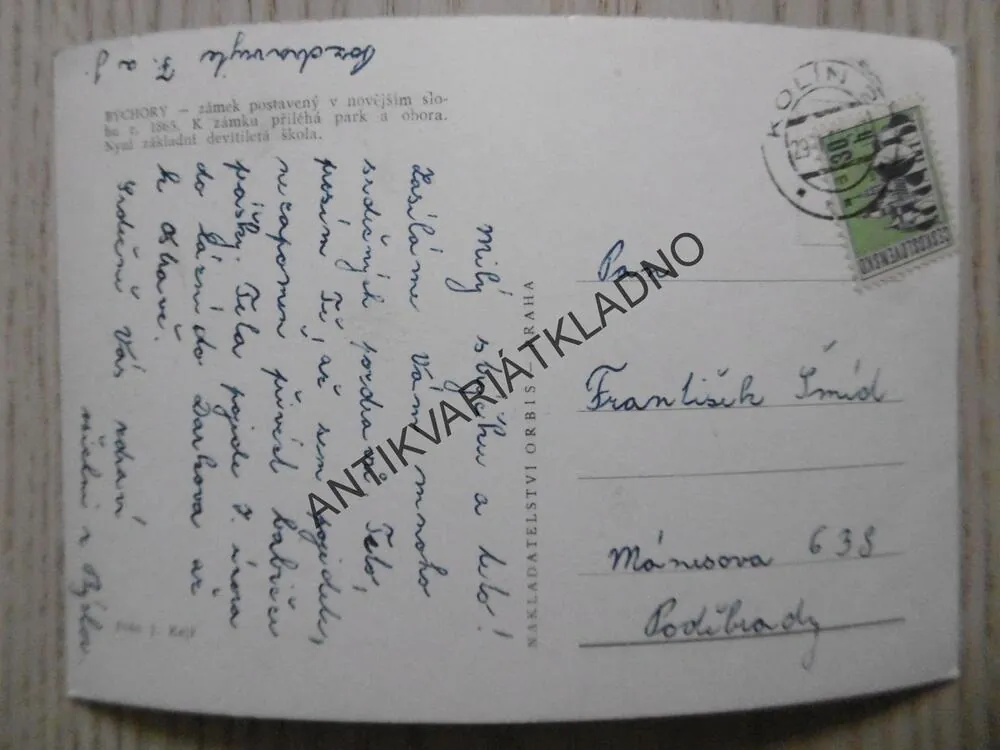 Pozdravujte F. a J.
BÝCHORY — zámek postavený v novějším slo-
hu r. 1865. K zámku přiléhá park a obora.
Nyní základní devítiletá škola.
Milý strýčku a teto!
Zasíláme Vám mnoho
srdečných pozdravů. Teto,
prosím Tě, až sem pojedeš,
nezapomen přivést babičce
pásky. Téta pojede 7. února
do lázní do Darkova až
k Ostravě.
Srdečně Vás zdraví
všichni z Býchor.
Foto J. Kejř
NAKLADATELSTVÍ ORBIS — PRAHA
KOLÍN
30 h
ČESKOSLOVENSKO
Pan
František Šmíd
Mánesova 638
Poděbrady
ANTIKVARIÁTKLADNO